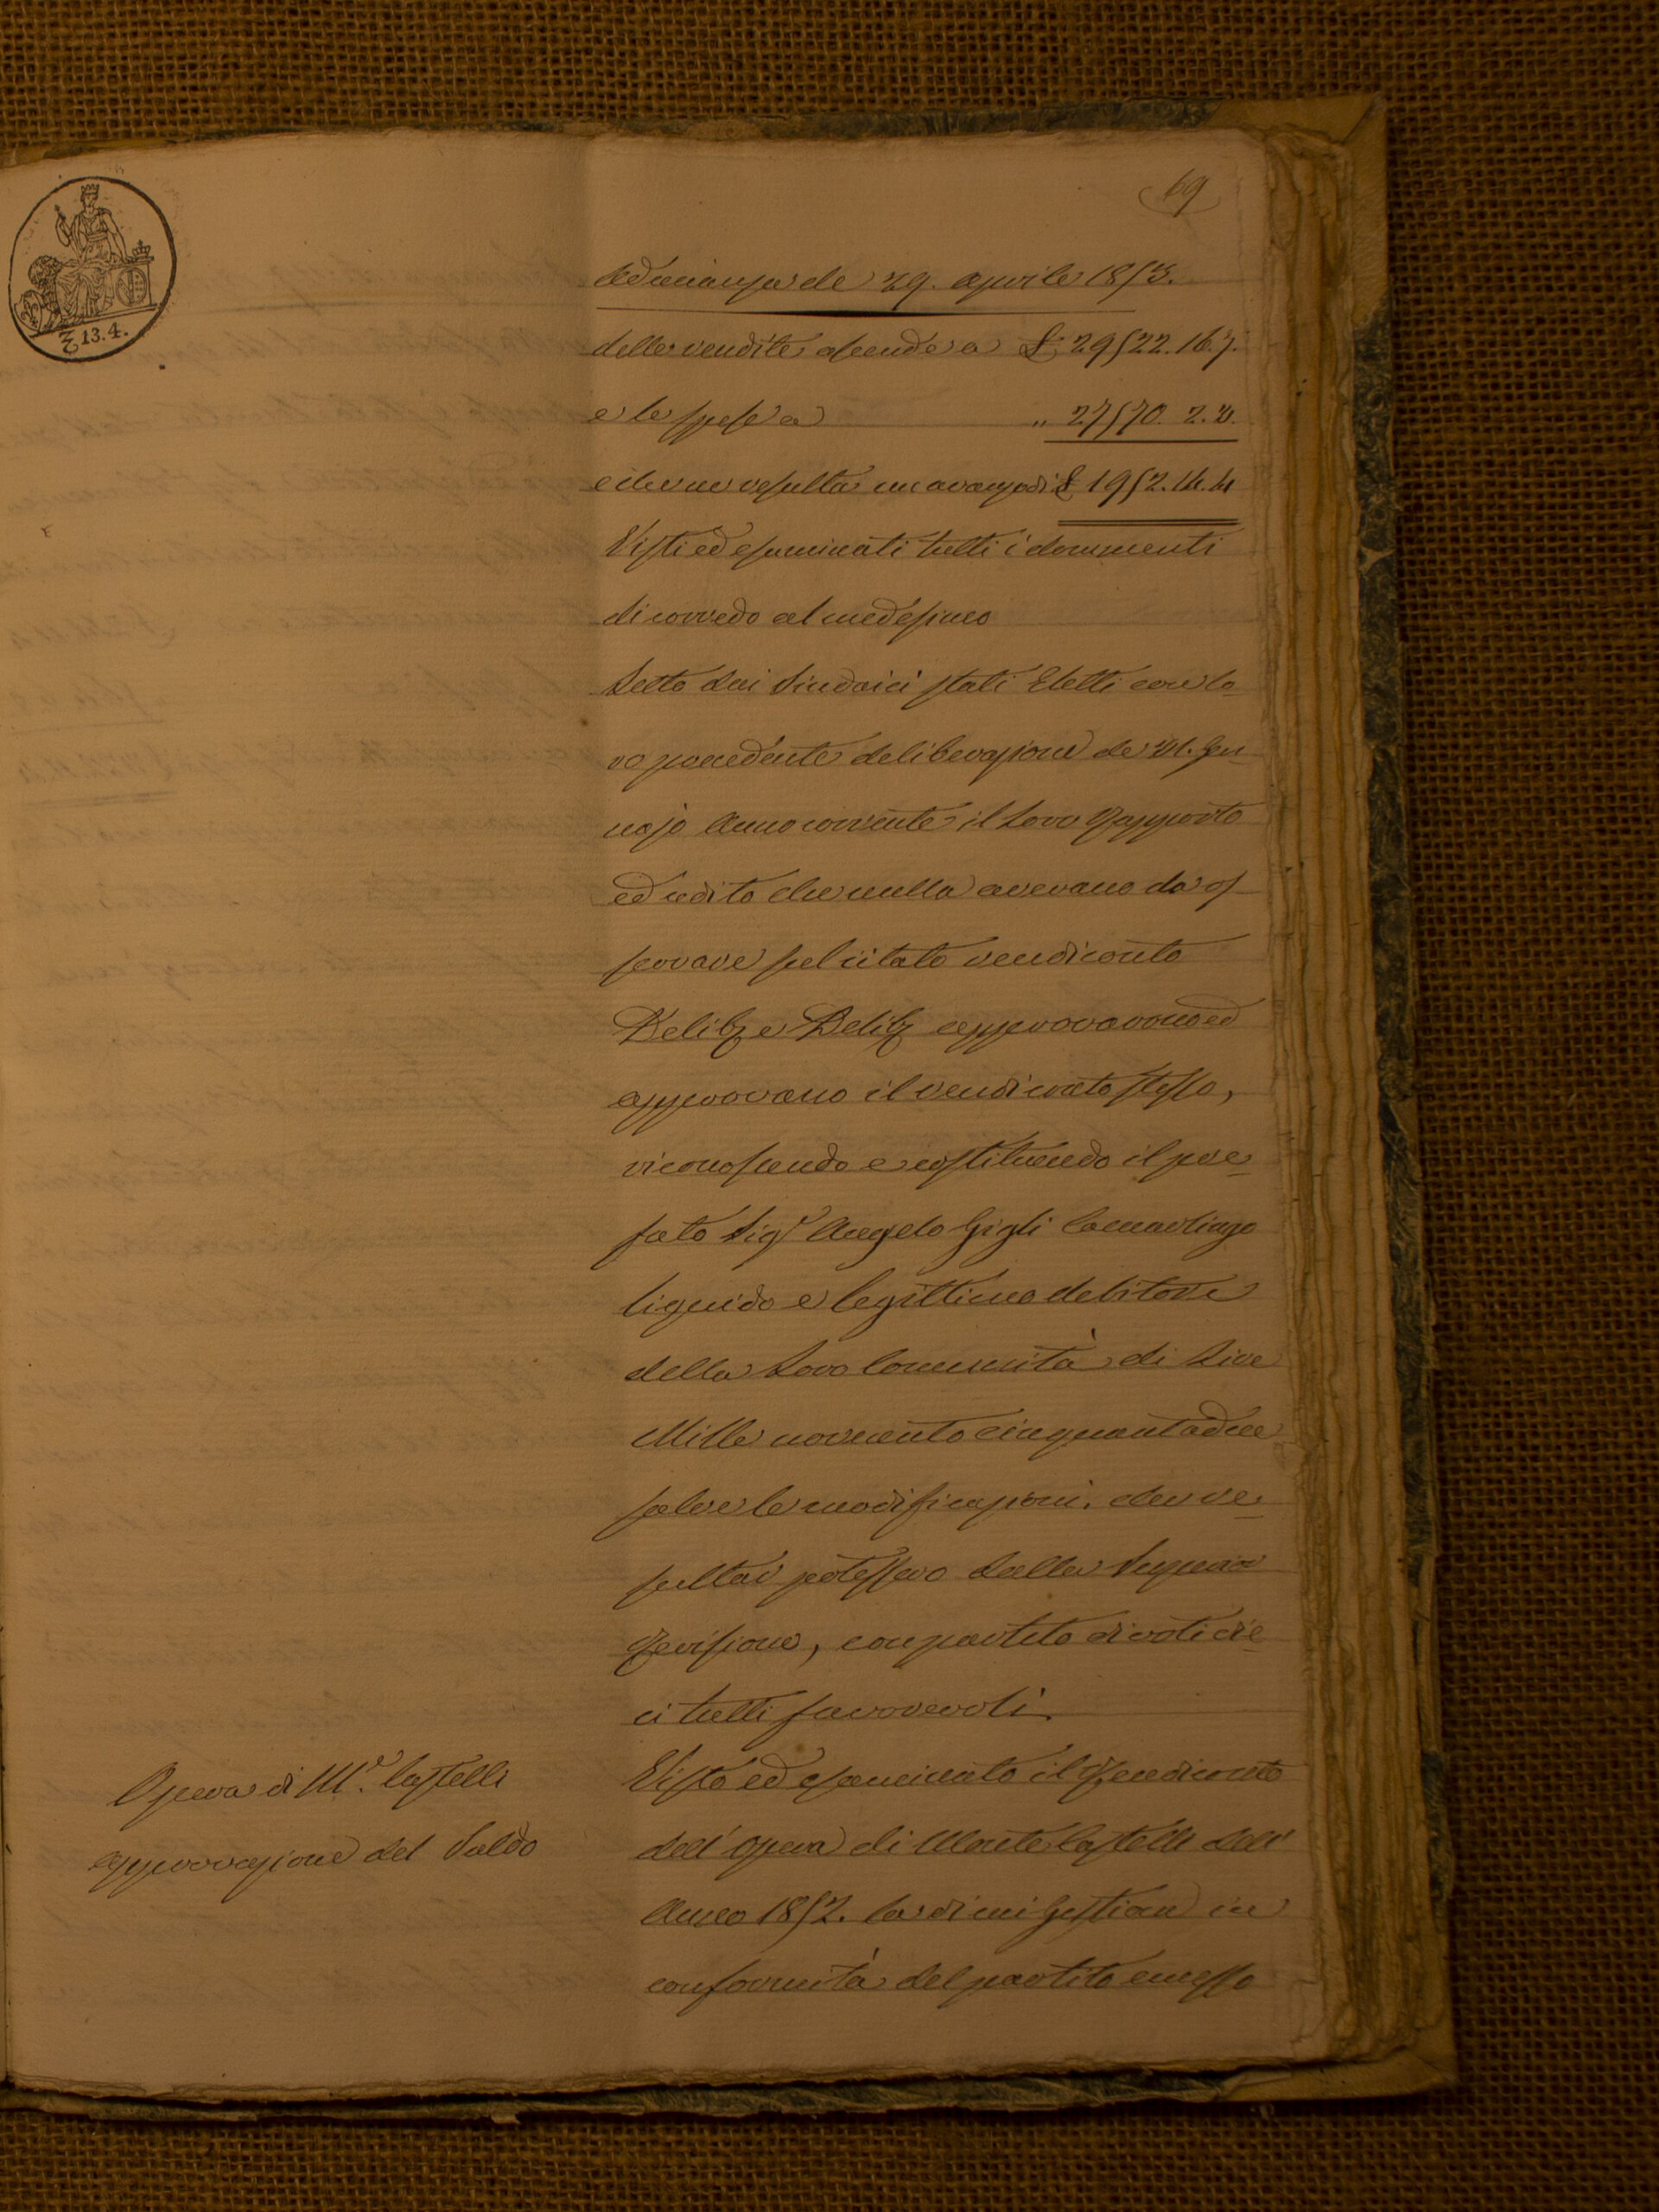 69
13.4.
Adunanza de 29. Aprile 1853.
delle rendite ascende a £ 29522. 16. 7.
e le spese a " 27570. 2.
e che ne resulta un avanzo di £ 1952. 14.
Visti ed esaminati tutti i documenti
di corredo al medesimo
Letto dai Sindaici stati Eletti con lo-
ro precedente deliberazione de Gen-
najo Anno corrente il Loro Rapporto
ed udito che nulla avevano da os-
servare sul citato rendiconto
Delib e Delib approvarono ed
approvano il rendiconto stesso,
riconoscendo e costituendo il pre-
fato Sigr Angelo Gigli Camarlingo
liquido e legittimo debitore
della Loro Comunità di Lire
Mille novecento cinquantadue
salve le modificazioni, che re-
sultar potessero dalla Superior
Revisione, con partito di voti die-
ci tutti favorevoli.
Opera di Me. Castelli
approvazione del Saldo
Visto ed esaminato il Rendiconto
dell' Opera di Monte Castelli dell'
Anno 1852. la di cui Gestione in
conformità del partito emesso